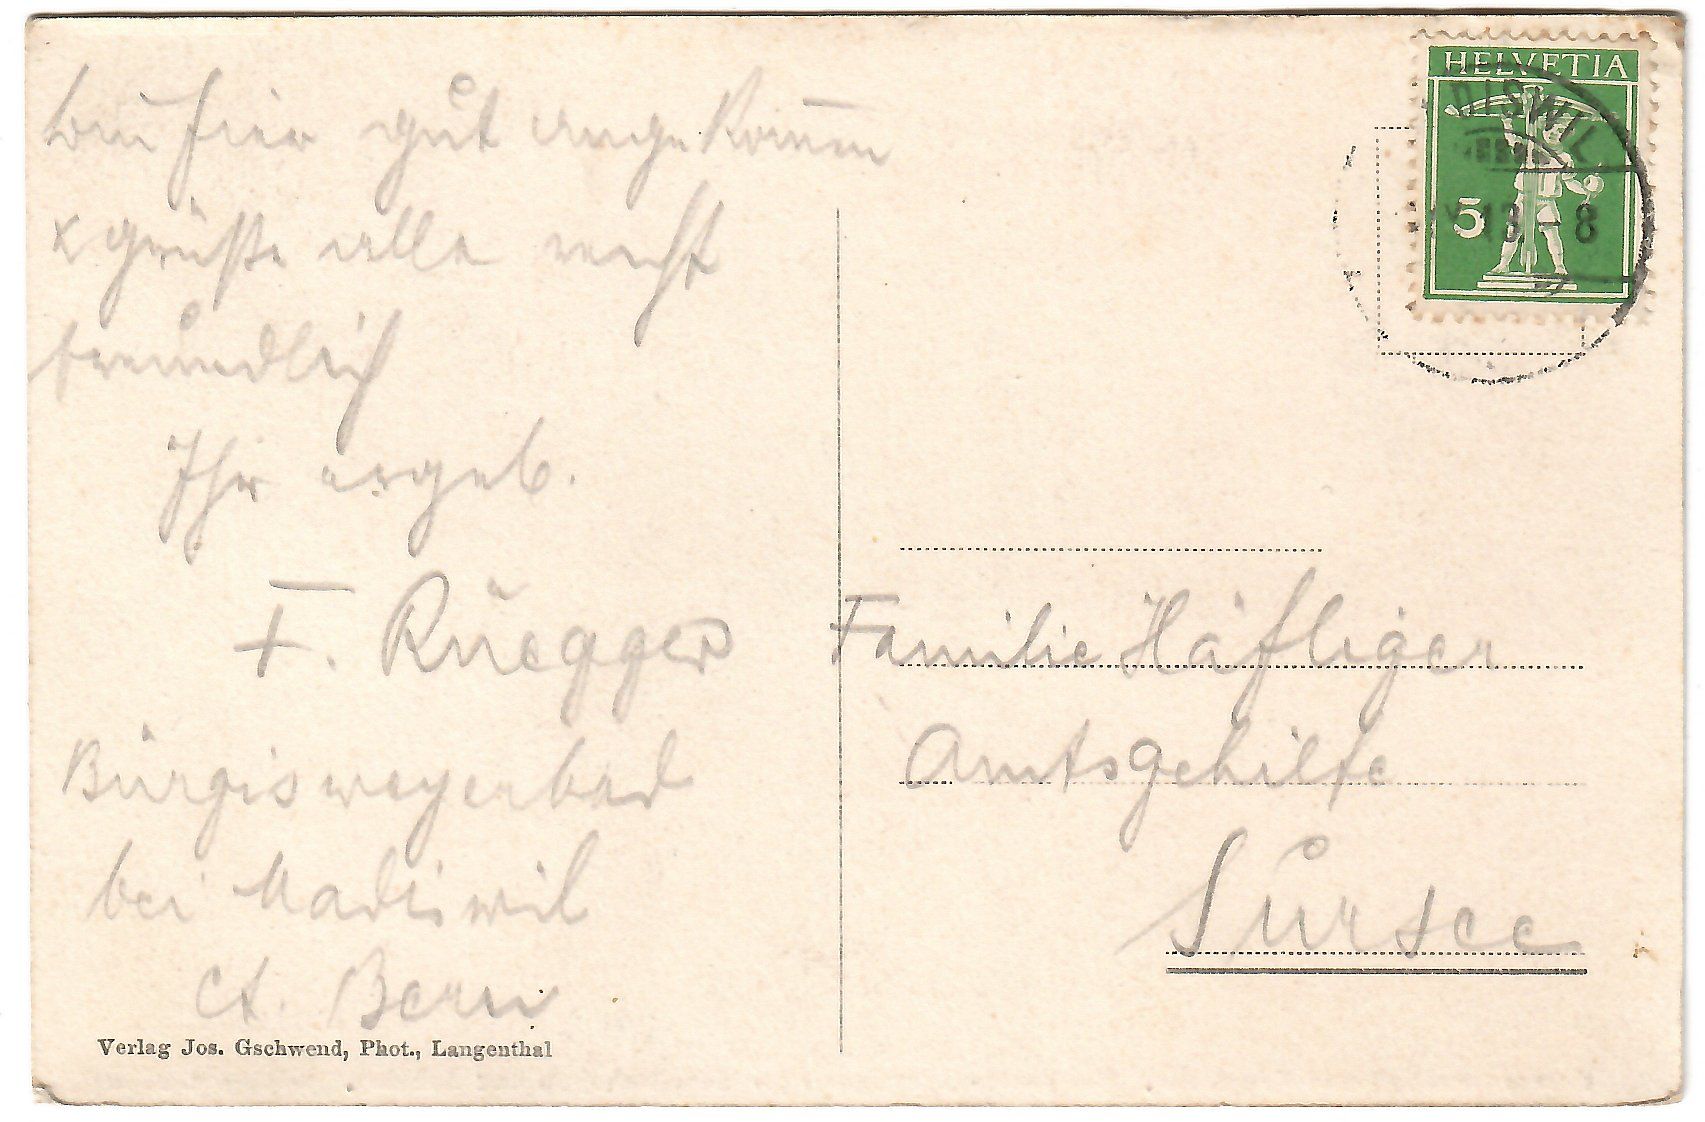 bin hier gut angekommen
& grüße alle recht
freundlich
Ihr ergeb.
F. Rüegger
Bürgisweyerbad
bei Madiswil
Ct. Bern
Verlag Jos. Gschwend, Phot., Langenthal
HELVETIA
5
DISWIL
13. - 8
Familie Häfliger
Amtsgehilfe
Sursee